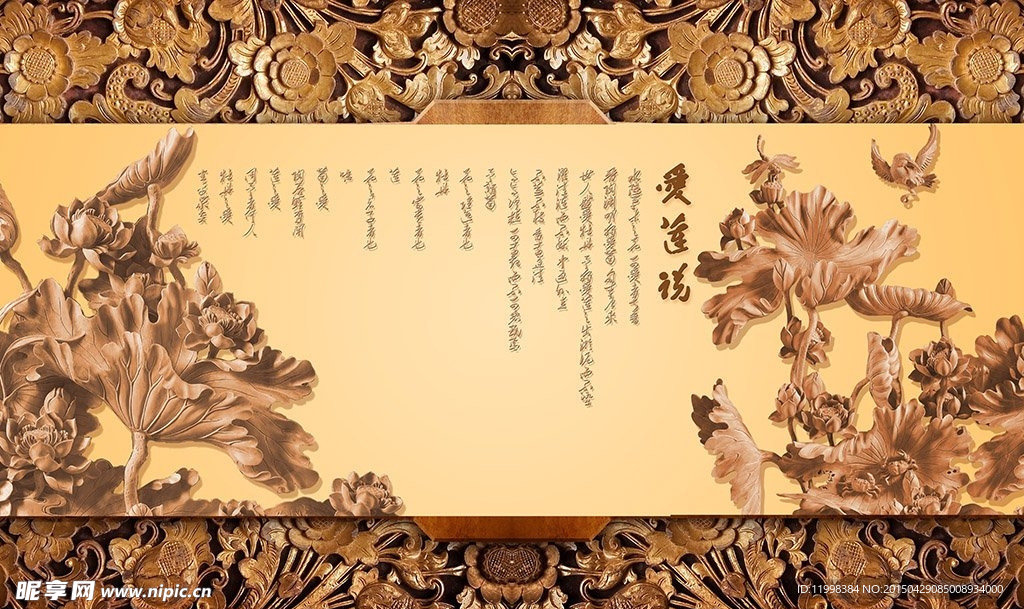 愛莲说
水陆草木之花 可爱者甚蕃
晋陶渊明独爱菊 自李唐来
世人盛爱牡丹 予独爱莲之出淤泥而不染
濯清涟而不妖 中通外直
不蔓不枝 香远益清
亭亭净植 可远观而不可亵玩焉
予谓菊
花之隐逸者也
牡丹
花之富贵者也
莲
花之君子者也
噫
菊之爱
陶后鲜有闻
莲之爱
同予者何人
牡丹之爱
宜乎众矣
昵享网 www.nipic.cn
ID:11998384 NO:20150429085008934000